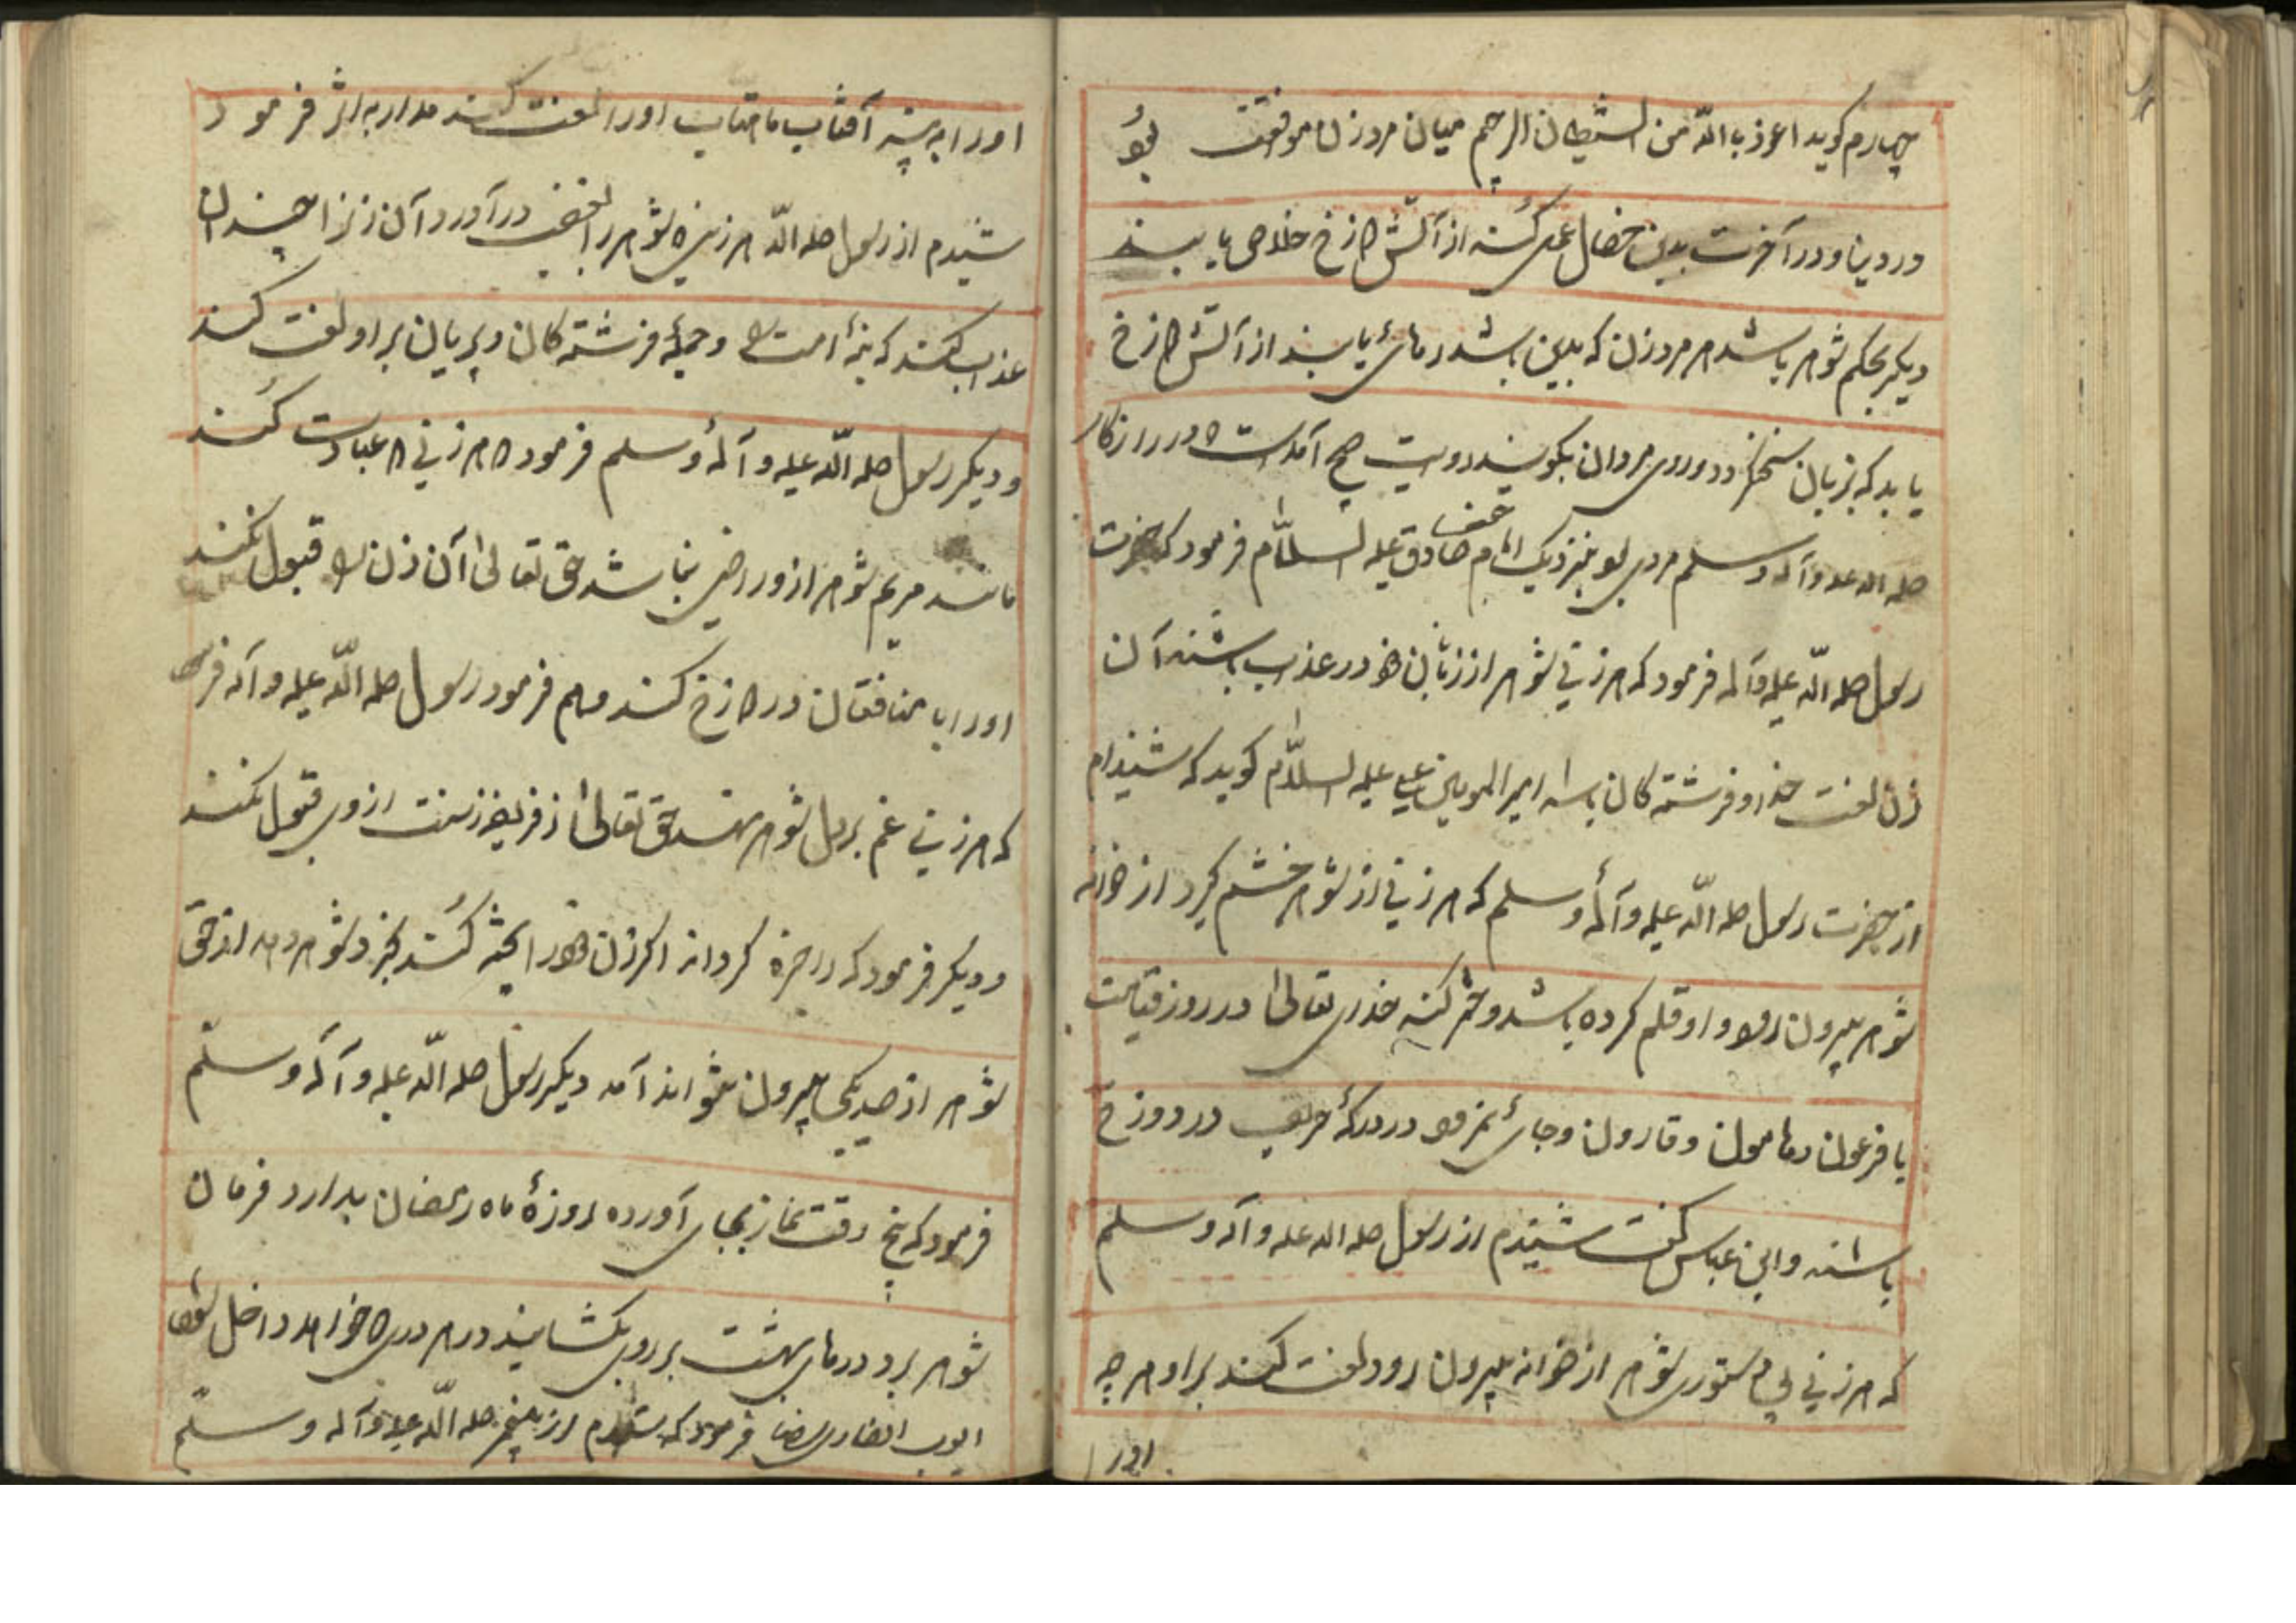 چهارم کوید اعوذ بالله من الشیطان الرجیم میان مرد زن موافقت بود
در دنیا و در آخرت بدین خصال عمل کنند از آتش دوزخ خلاصی یابند
دیکر بحکم شوهر باشد هر مرد زن که بدین باشد رهائی یابند از آتش دوزخ
یا بد که بزبان روی مردان بکویند روایت صحیح آمد است در روزکار
صلی الله علیه وآله وسلم مردی بود بنزدیک امام جعفر صادق علیه السلام فرمود که حضرت
رسول صلی الله علیه وآله فرمود که هر زنی شوهر از زبان خود در عذاب باشند آن
زن لعنت خدا و فرشته کان باشد امیر المومنین علی علیه السلام کوید که شنیدام
از حضرت رسول صلی الله علیه وآله وسلم که هر زنی از شوهر خشم کیرد از خوانه
شوهر بیرون رود و او قلم کرده باشد و حشر کند خدای تعالی در روز قیامت
با فرعون و هامون و قارون و جائی در درکهٔ در دوزخ
باشند و ابن عباس کفت شنیدم از رسول صلی الله علیه وآله وسلم
که هر زنی بی دستوری شوهر از خوانه بیرون رود لعنت کنند بر او هر چه
اورا
اورا به بیند آفتاب ماهتاب اورا لعنت کنند فرمود
شنیدم از رسول صلی الله هر زنی که شوهر را بغضب در آورد آن زنرا چندان
عذاب کنند که امت و جملهٔ فرشته کان و پریان بر او لعنت کنند
و دیکر رسول صلی الله علیه وآله وسلم فرمود هر زنی که عبادت کند
مانند مریم شوهر از و راضی نباشد حق تعالی آن زن را قبول نکند
اورا با منافقان در دوزخ کنند و هم فرمود رسول صلی الله علیه وآله
که هر زنی غم بر دل شوهر نهد حق تعالی از فریضه و سنت از وی قبول نکند
و دیکر فرمود که اکر زن خود را کند و شوهر دهد از حق
شوهر از صد یکی بیرون نتواند آمد دیکر رسول صلی الله علیه وآله وسلم
فرمود که پنج وقت نماز بجای آورده روزهٔ ماه رمضان بدارد فرمان
شوهر برد درهای بهشت بر روی بکشایند در هر دری که خواهد داخل شود
ایوب انصاری فرمود که شنیدم از پیغمبر صلی الله علیه وآله وسلم